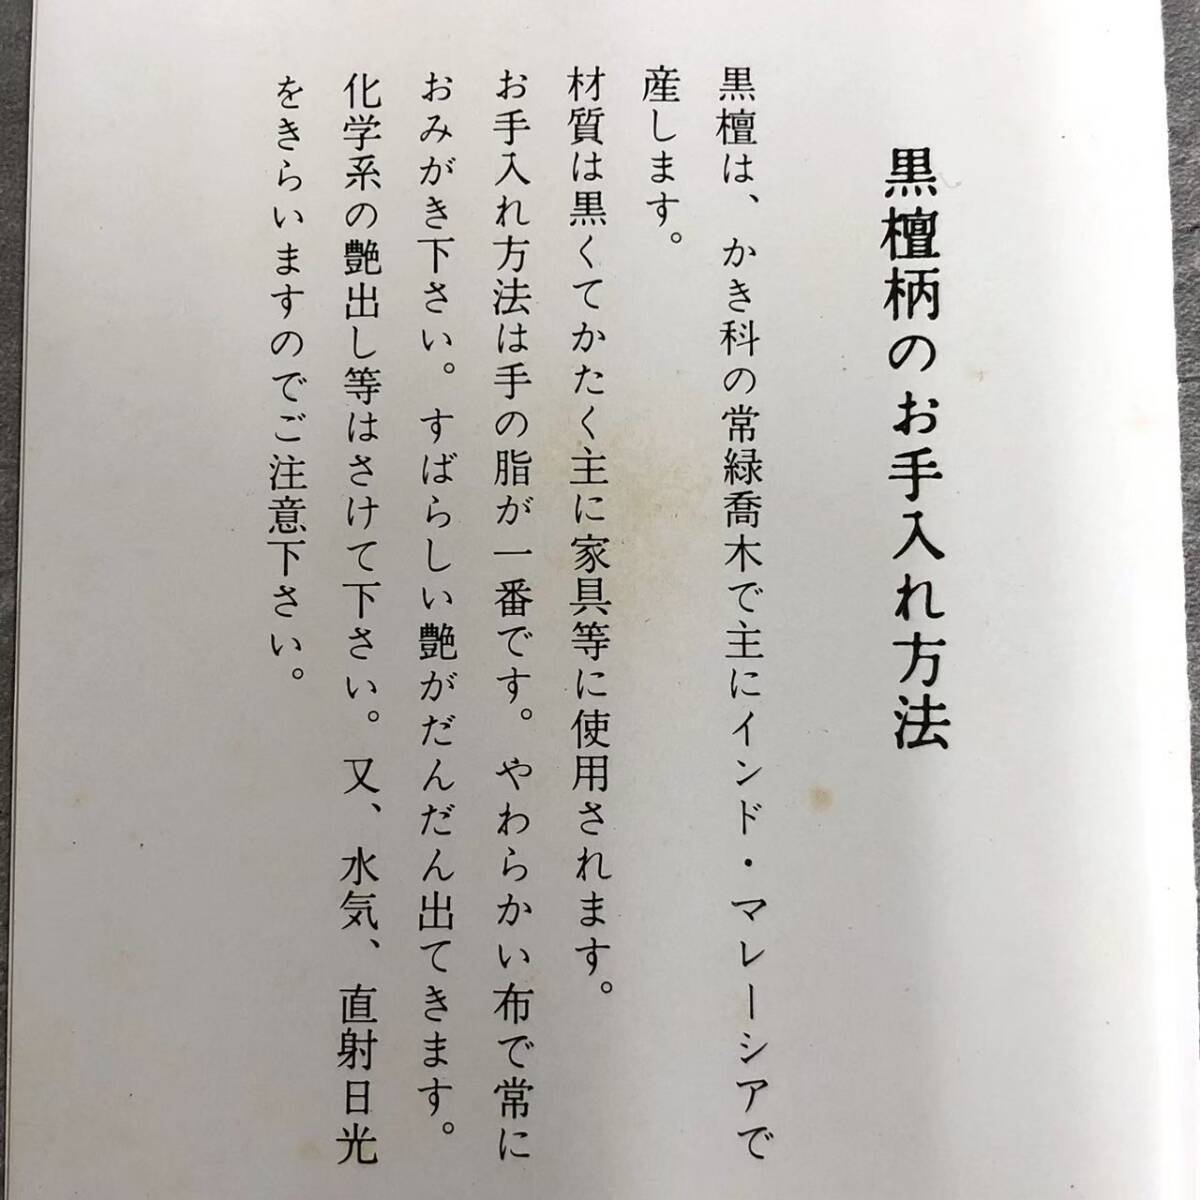 黒檀柄のお手入れ方法
黒檀は、かき科の常緑喬木で主にインド・マレーシアで
産します。
材質は黒くてかたく主に家具等に使用されます。
お手入れ方法は手の脂が一番です。やわらかい布で常に
おみがき下さい。すばらしい艶がだんだん出てきます。
化学系の艶出し等はさけて下さい。又、水気、直射日光
をきらいますのでご注意下さい。